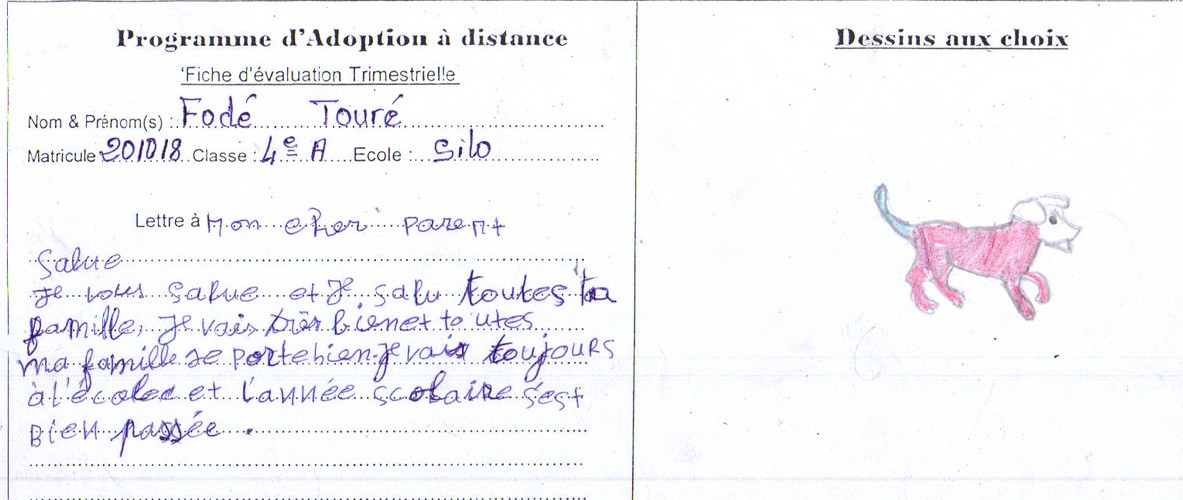 Programme d'Adoption à distance
Fiche d'évaluation Trimestrielle
Nom & Prénom(s) : Fodé Touré
Matricule 201018 Classe : 4e A Ecole : Silo
Lettre à Mon cher parent
Salue
Je vous salue et Je salu toutes ta
famille, Je vais très bien et toutes
ma famille se porte bien. Je vais toujours
à l'écolee et l'année scolaire s'est
Bien passée.
Dessins aux choix